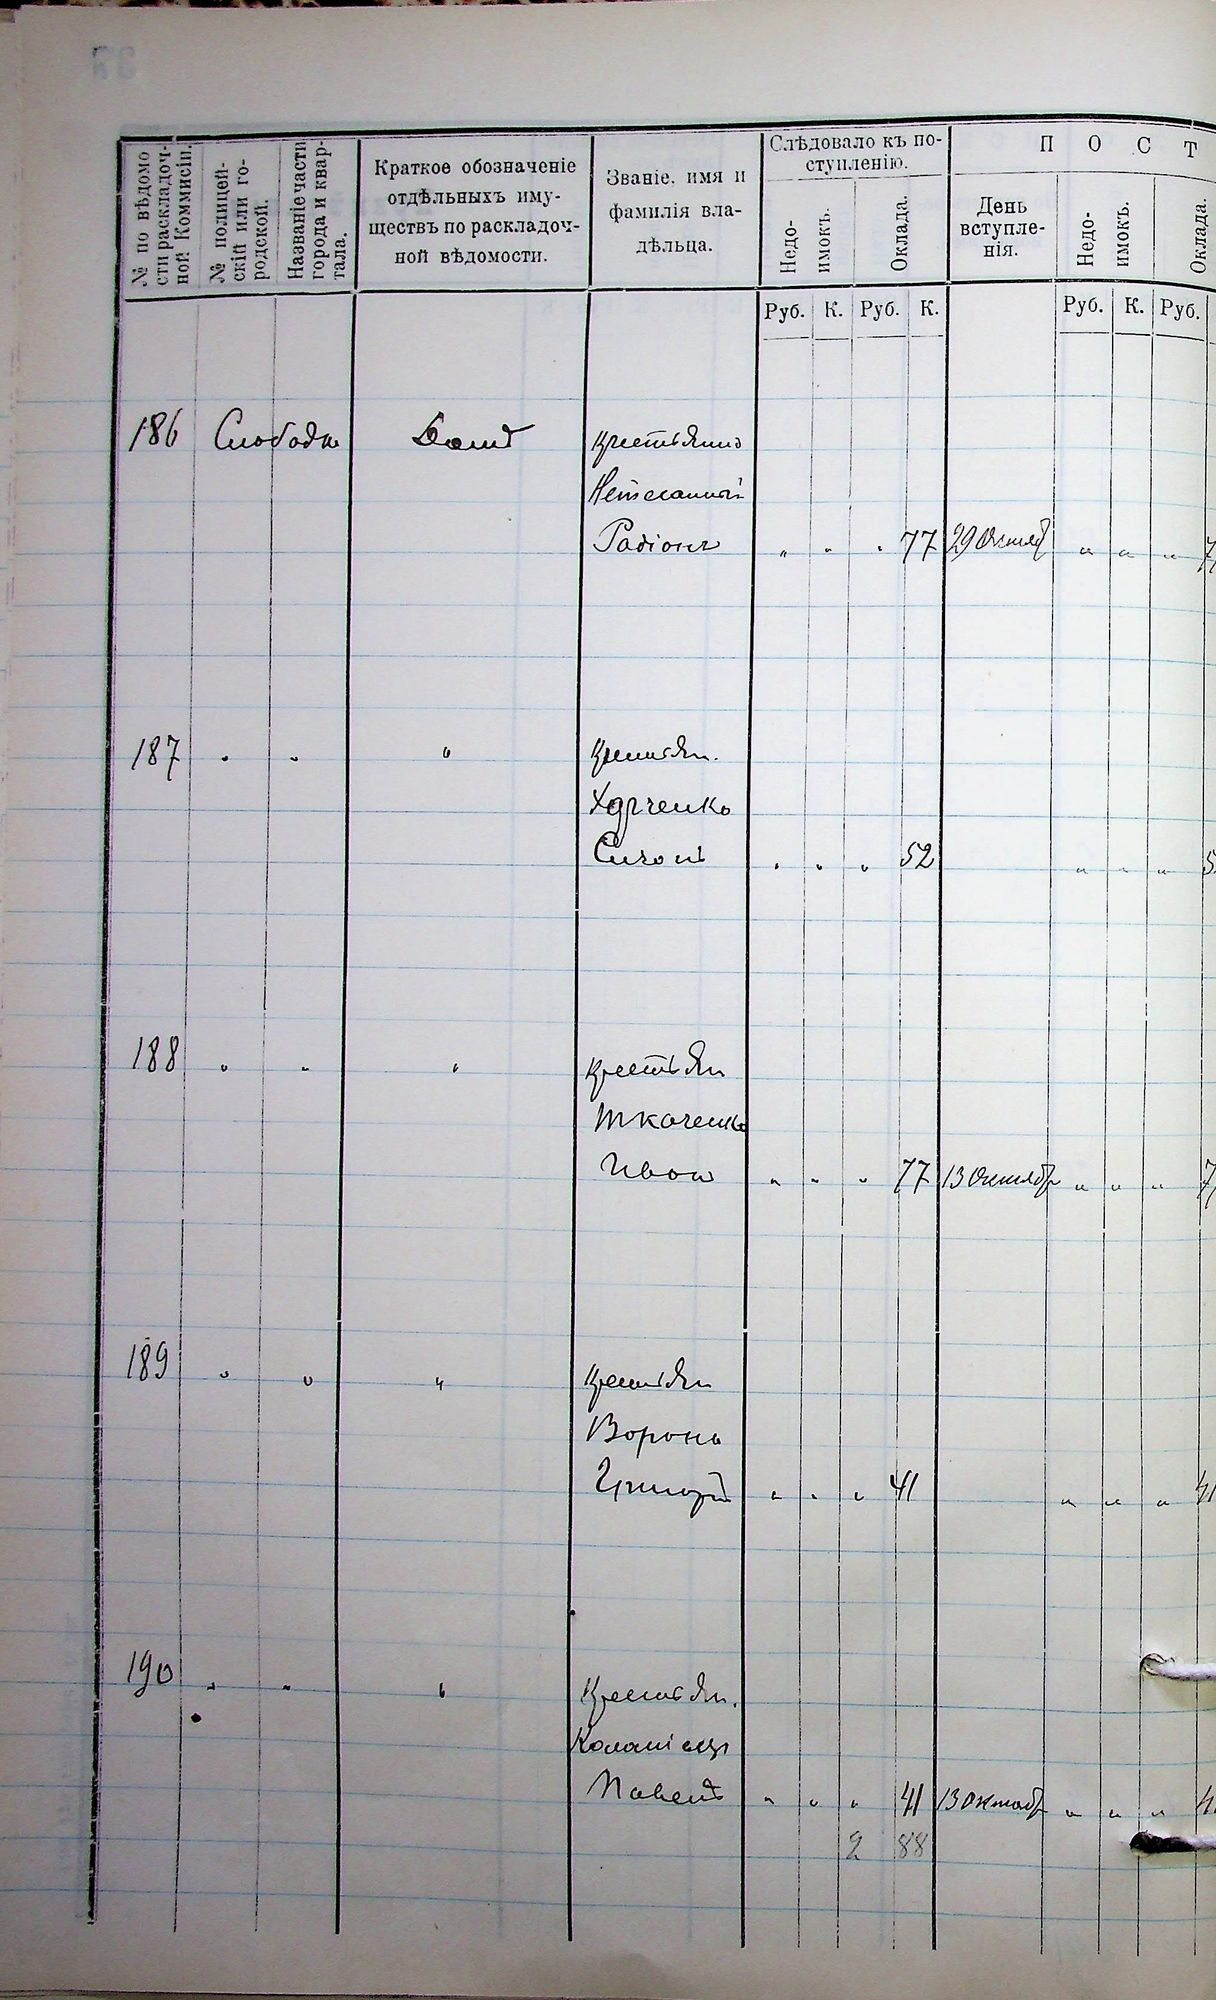 № по вѣдомо
сти раскладоч-
ной Коммисіи.
№ полицей-
скій или го-
родской.
Названіе части
города и квар-
тала.
Краткое обозначеніе
отдѣльныхъ иму-
ществъ по раскладоч-
ной вѣдомости.
Званіе, имя и
фамилія вла-
дѣльца.
Слѣдовало къ по-
ступленію.
Недо-
имокъ.
Оклада.
П О С Т
День
вступле-
нія.
Недо-
имокъ.
Оклада.
Руб. К. Руб. К. Руб. К. Руб.
186 Слободка Домъ крестьянинъ
Родіонъ " " " 77 29 Октяб " " " 7
187 " " " крестьян.
Харченко
" " " 52 " " " 5
188 " " " крестьян
Ткаченко
Иванъ " " " 77 13 Октябр " " " 7
189 " " " крестьян
Воронъ
Григорій " " " 41 " " " 41
190 " " " крестьян.
Коломіецъ
Павелъ " " " 41 13 Октябр " " " 4
2 88